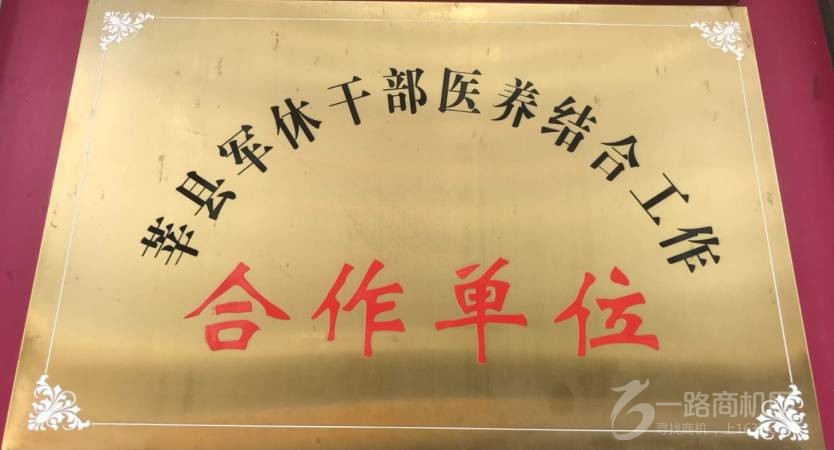 莘县军休干部医养结合工作
合作单位
一路商机
寻找商机，上163